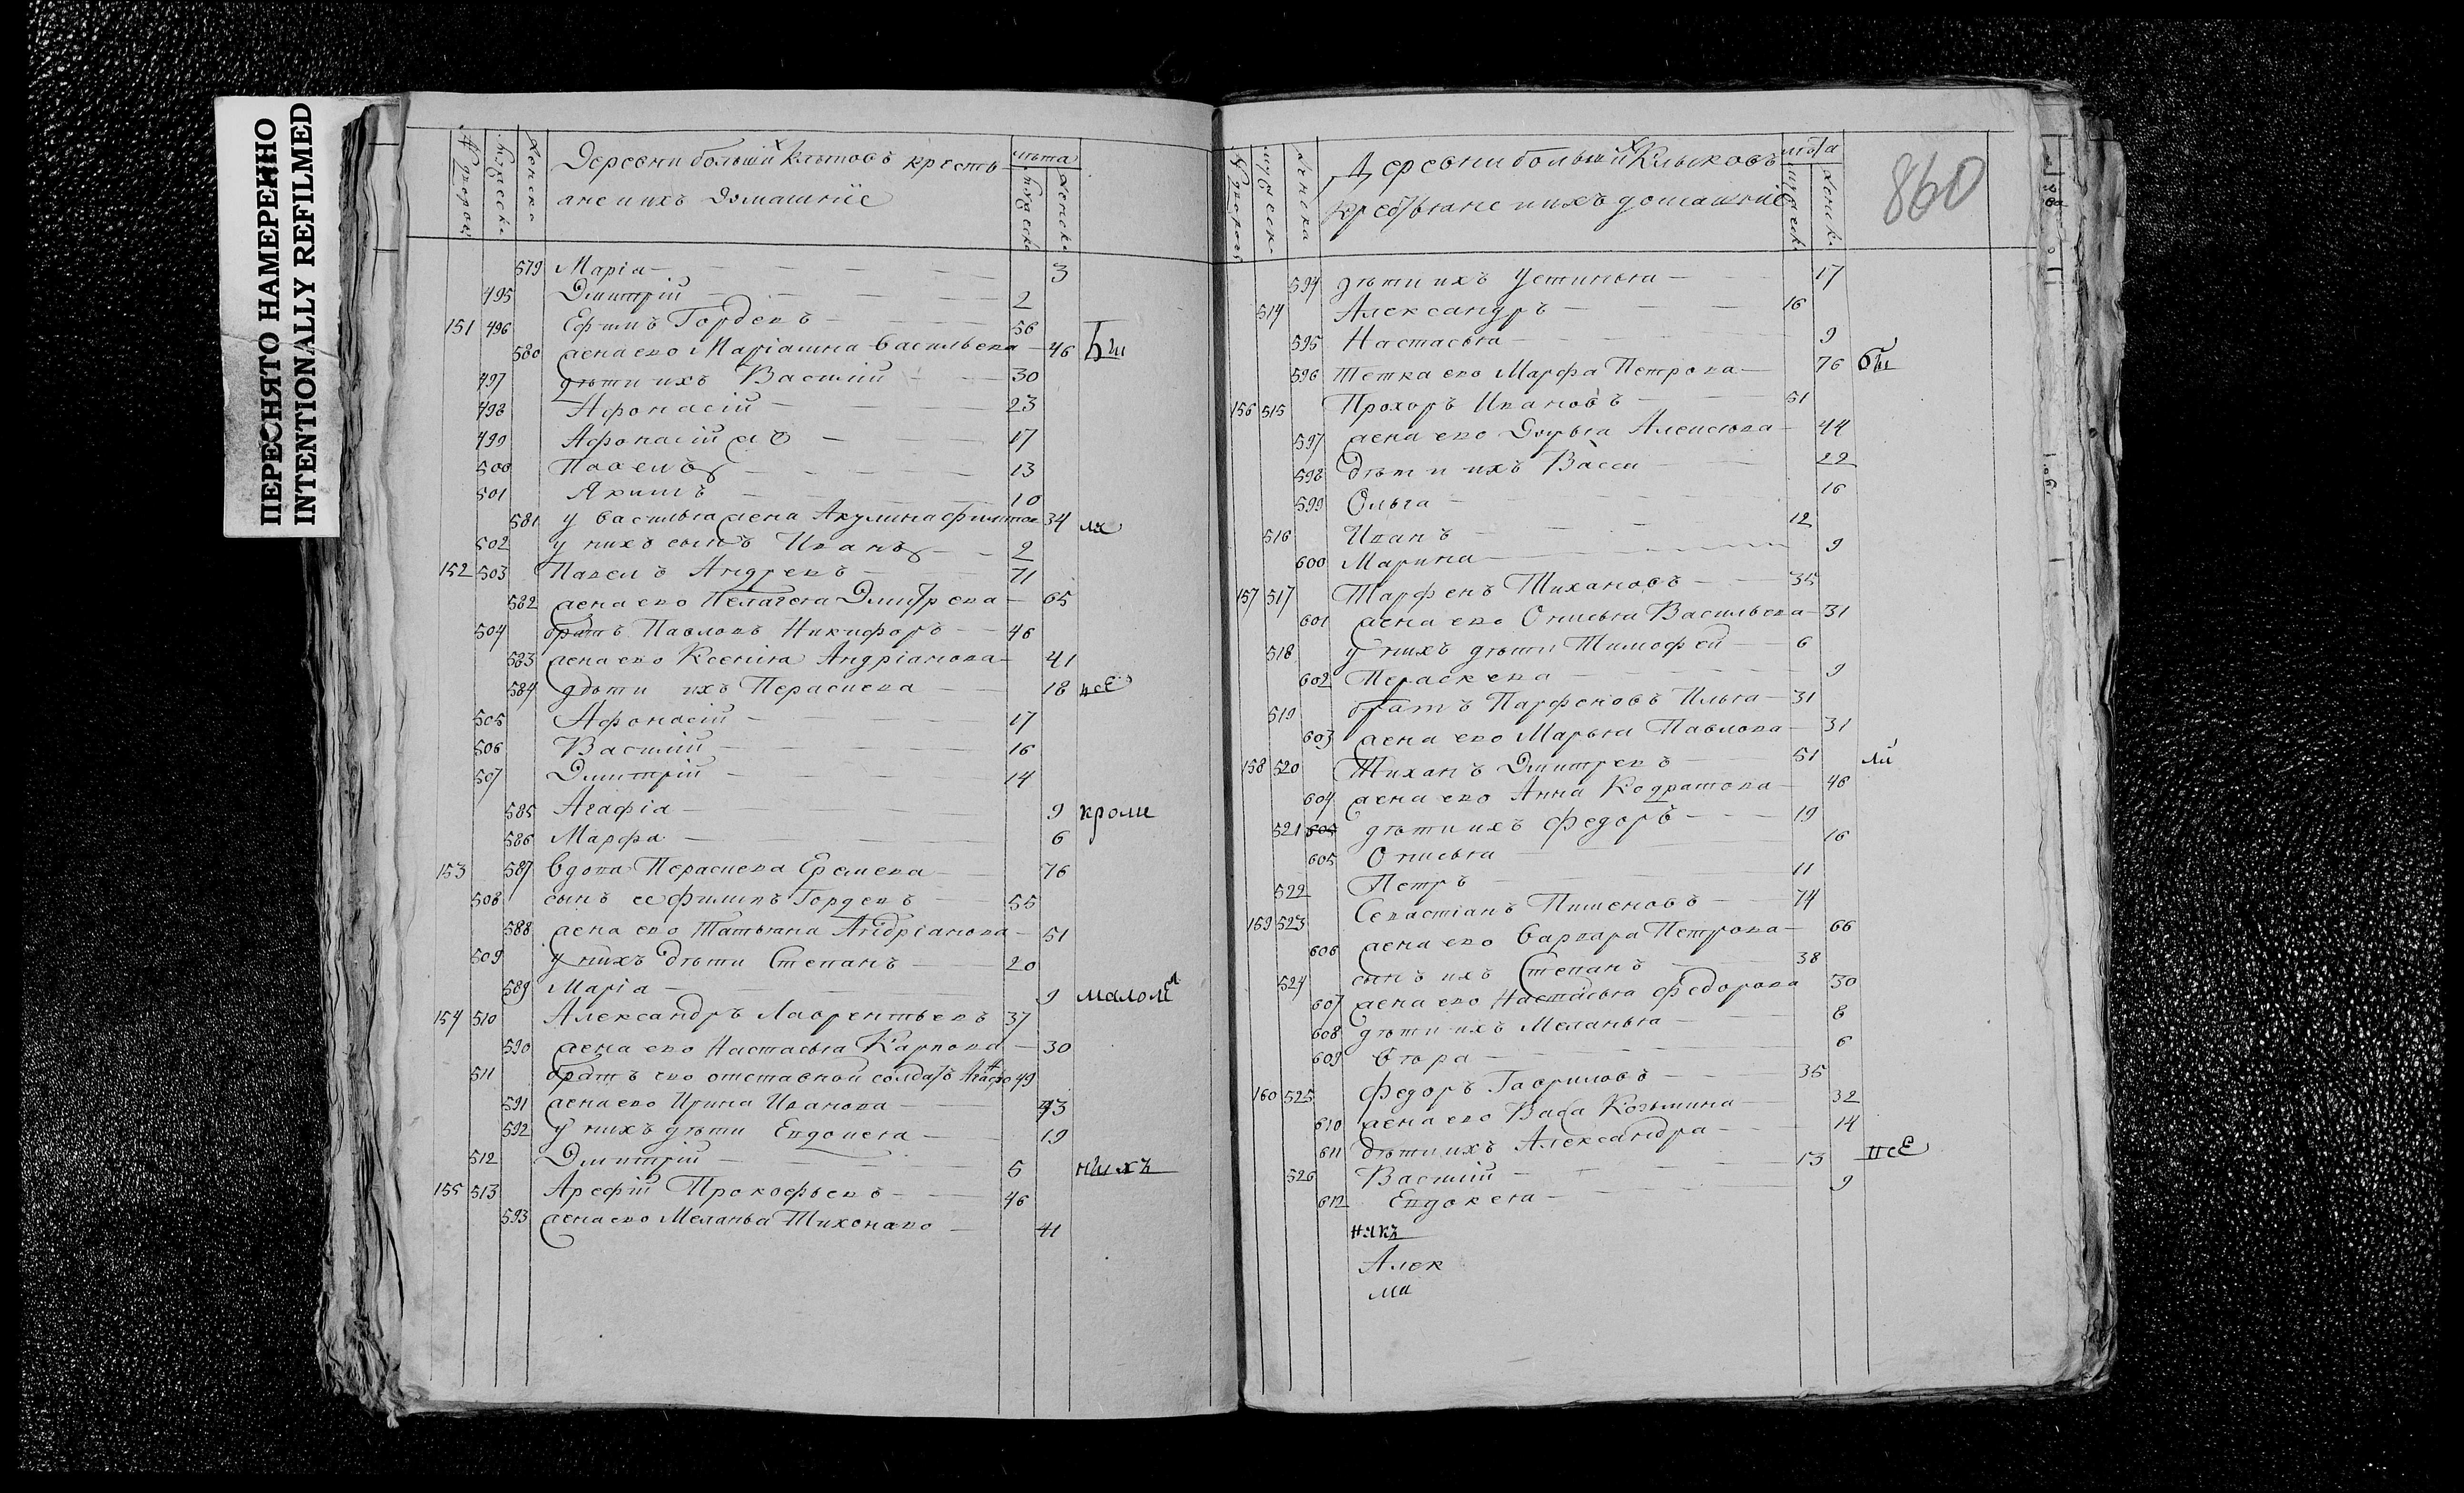 ПЕРЕСНЯТО НАМЕРЕННО
INTENTIONALLY REFILMED
№ дворовъ мужеска женска Деревни больших Клыковъ крестья лѣта
ане и ихъ домашніе мужеска женска
579 Маріа 3
495 Дмитрій 2
151 496 Ефимъ Гордевъ 56
580 жена ево Маріамна Васильева 46 Бы
497 дѣти ихъ Василій 30
498 Афонасій 23
499 Афонасій 17
500 Павелъ 13
501 Якимъ 10
581 у Василья жена Акулина 34 ля
502 у нихъ сынъ Иванъ 2
152 503 Павелъ Андревъ 71
582 жена ево Пелагея Дмитрева 65
504 братъ Павловъ Никифоръ 46
583 жена ево Ксеніа Андріанова 41
584 дѣти ихъ Пераскева 18 исе
505 Афонасій 17
506 Василій 16
507 Дмитрій 14
585 Агафіа 9 кроме
586 Марфа 6
153 587 вдова Пераскева Еремева 76
508 сынъ ее Филипъ Гордевъ 55
588 жена ево Татьяна Андріанова 51
509 у нихъ дѣти Степанъ 20
589 Маріа 9 малолѣ
154 510 Александръ Лаврентьевъ 37
590 жена ево Настасья Карпова 30
511 братъ ево отставной солдатъ 49
591 жена ево Ирина Иванова 43
592 у нихъ дѣти Евдокея 19
512 Дмитрій 5 ныхъ
155 513 Арефій Прокофьевъ 46
593 жена ево Меланья Тихонаво 41
№ дворовъ мужеск женска Деревни больших Клыковъ лѣта
крестьяне и ихъ домашніе мужеск женск 860
594 дѣти ихъ Устинья 17
514 Александръ 16
595 Настасья 9
596 тетка ево Марфа Петрова 76 бы
156 515 Прохоръ Ивановъ 51
597 жена ево Дарья Алексюва 44
598 дѣти ихъ Васса 22
599 Ольга 16
516 Иванъ 12
600 Марина 9
157 517 Парфенъ Тихановъ 35
601 жена ево Онисья Васильева 31
518 у нихъ дѣти Тимофей 6
602 Пераскева 9
519 братъ Парфеновъ Илья 31
603 жена ево Марья Павлова 31
158 520 Тиханъ Дмитревъ 51 ли
604 жена ево Анна Кодратова 48
521 605 дѣти ихъ Федоръ 19
605 Онисья 16
522 Петръ 11
159 523 Севастіанъ Пименовъ 74
606 жена ево Варвара Петрова 66
524 сынъ ихъ Степанъ 38
607 жена ево Настасья Федорова 30
608 дѣти ихъ Меланья 8
609 Вѣра 6
160 525 Федоръ Гавриловъ 35
610 жена ево Васа Козьмина 32
611 дѣти ихъ Александра 14
526 Василій 13 псе
612 Евдокея 9
някъ
Алек
ма